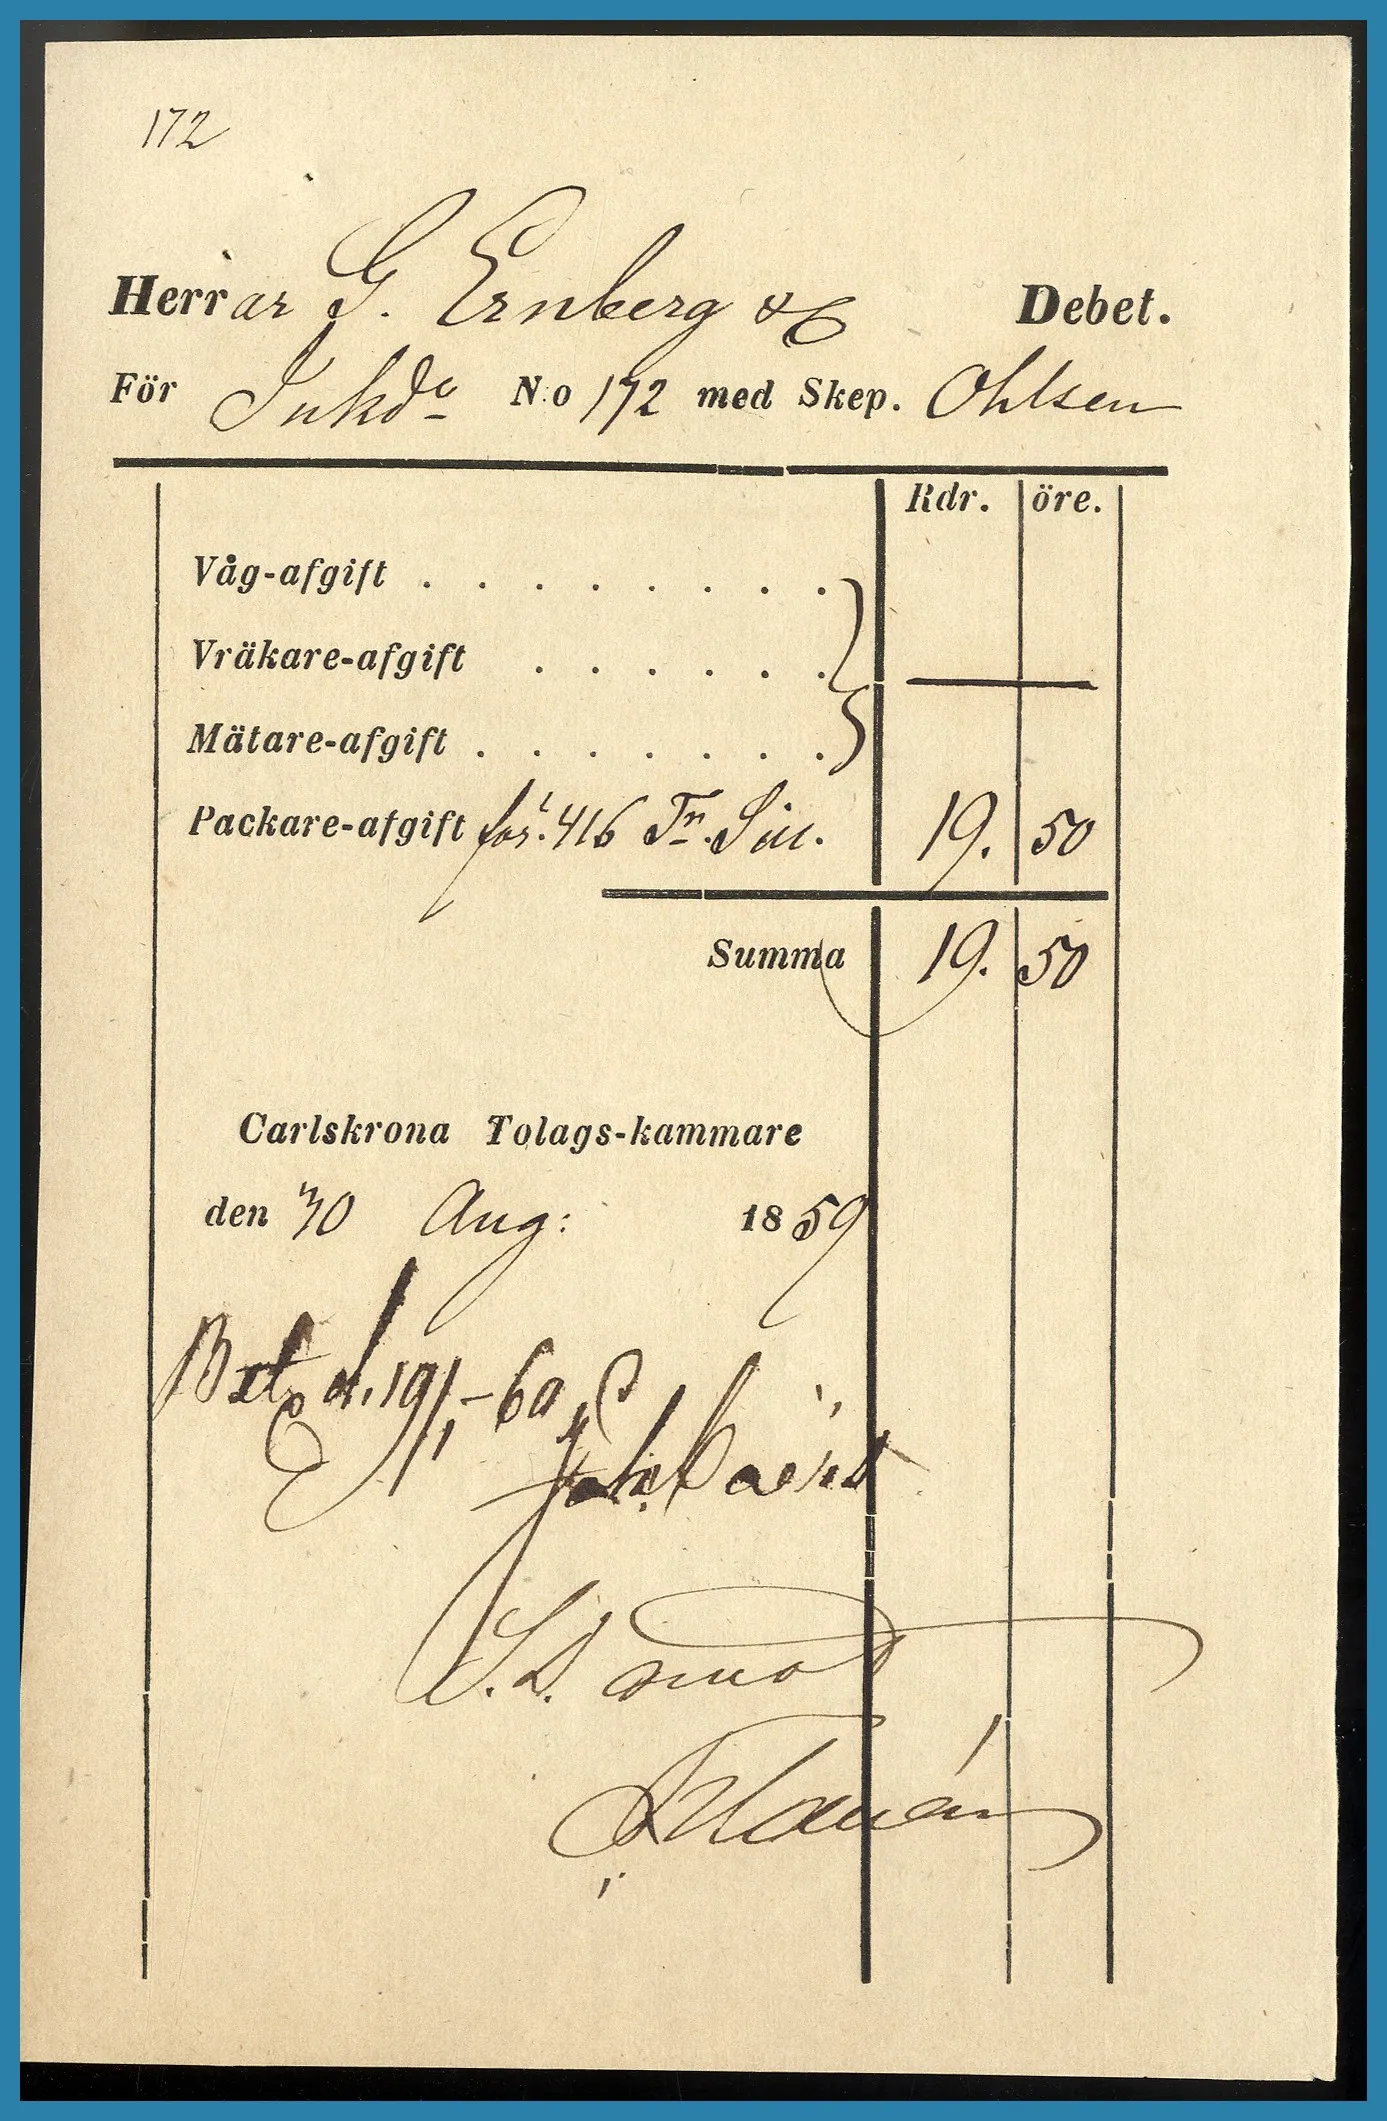 172
Herrar G. Ernberg & C
Debet.
För Inkdo No 172 med Skep. Ohlsen
Rdr. öre.
Våg-afgift . . . . . . . .
Vräkare-afgift . . . . . .
Mätare-afgift . . . . . . .
Packare-afgift för 416 Tn. Sill. 19. 50
Summa 19. 50
Carlskrona Tolags-kammare
den 30 Aug: 1859
d. 19/1 - 60